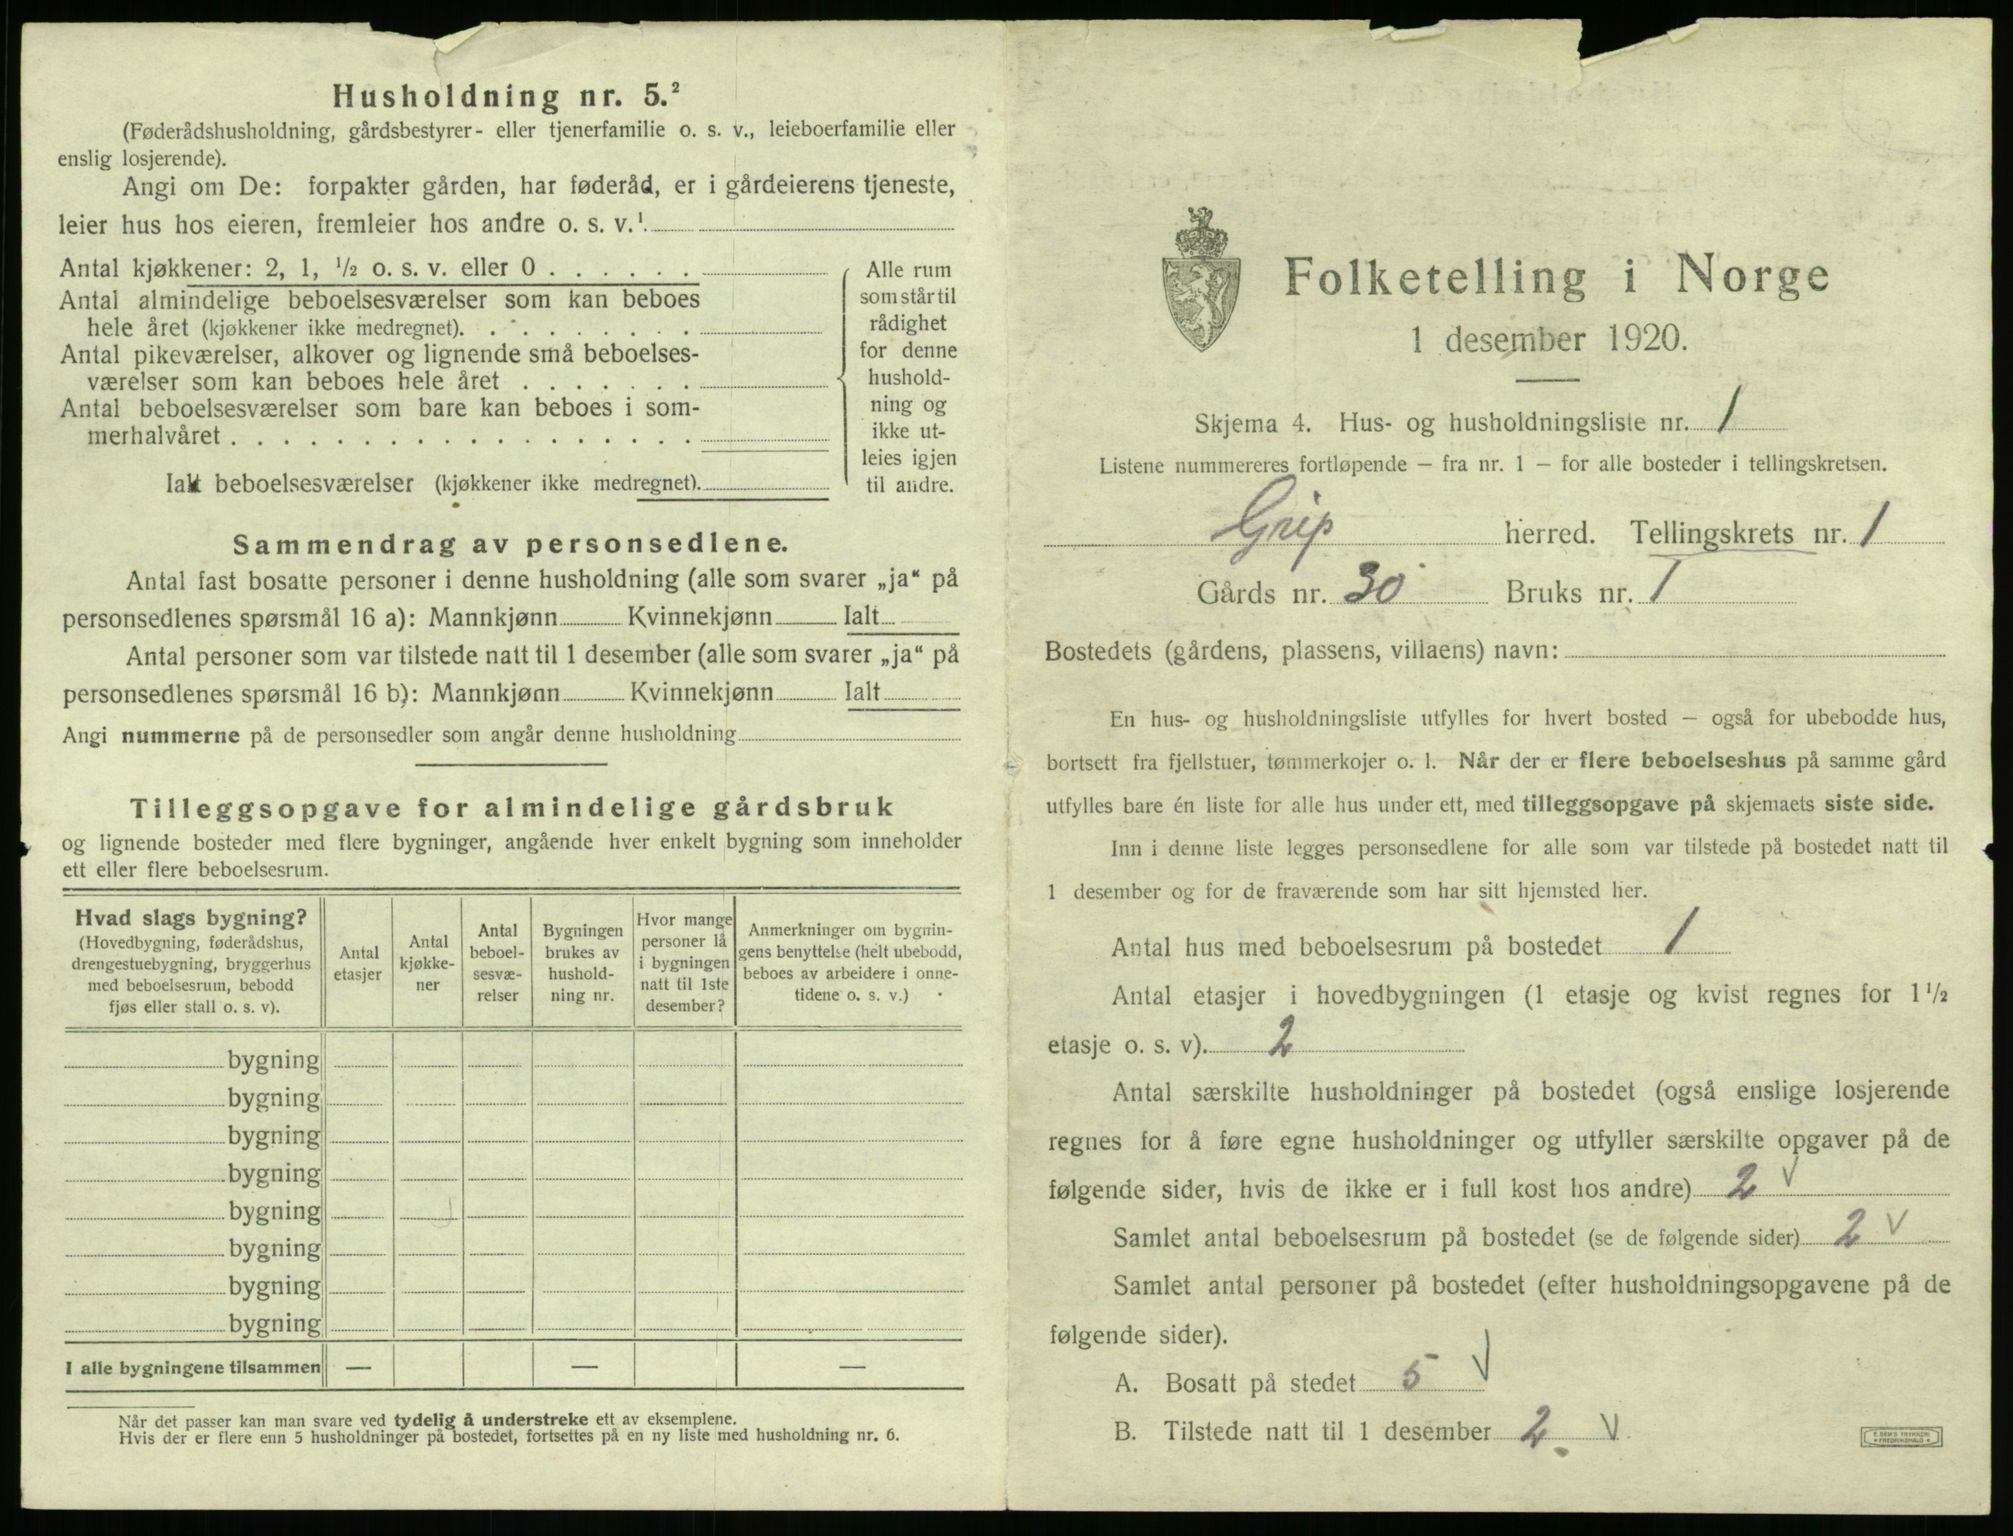 Husholdning nr. 5.²
(Føderådshusholdning, gårdsbestyrer- eller tjenerfamilie o. s. v., leieboerfamilie eller
enslig losjerende).
Angi om De: forpakter gården, har føderåd, er i gårdeierens tjeneste,
leier hus hos eieren, fremleier hos andre o. s. v.¹
Antal kjøkkener: 2, 1, ½ o. s. v. eller 0 . . . . . .
Antal almindelige beboelsesværelser som kan beboes
hele året (kjøkkener ikke medregnet). . . . . . . . .
Antal pikeværelser, alkover og lignende små beboelses-
værelser som kan beboes hele året . . . . . . .
Antal beboelsesværelser som bare kan beboes i som-
merhalvåret . . . . . . . . . . . . . . . . . .
Ialt beboelsesværelser (kjøkkener ikke medregnet).
Alle rum
som står til
rådighet
for denne
hushold-
ning og
ikke ut-
leies igjen
til andre.
Sammendrag av personsedlene.
Antal fast bosatte personer i denne husholdning (alle som svarer „ja“ på
personsedlenes spørsmål 16 a): Mannkjønn Kvinnekjønn Ialt
Antal personer som var tilstede natt til 1 desember (alle som svarer „ja“ på
personsedlenes spørsmål 16 b): Mannkjønn Kvinnekjønn Ialt
Angi nummerne på de personsedler som angår denne husholdning
Tilleggsopgave for almindelige gårdsbruk
og lignende bosteder med flere bygninger, angående hver enkelt bygning som inneholder
ett eller flere beboelsesrum.
Hvad slags bygning?
(Hovedbygning, føderådshus,
drengestuebygning, bryggerhus
med beboelsesrum, bebodd
fjøs eller stall o. s. v).
Antal
etasjer
Antal
kjøkke-
ner
Antal
beboel-
sesvæ-
relser
Bygningen
brukes av
hushold-
ning nr.
Hvor mange
personer lå
i bygningen
natt til 1ste
desember?
Anmerkninger om bygnin-
gens benyttelse (helt ubebodd,
beboes av arbeidere i onne-
tidene o. s. v.)
bygning
bygning
bygning
bygning
bygning
bygning
bygning
bygning
I alle bygningene tilsammen — — —
Når det passer kan man svare ved tydelig å understreke ett av eksemplene.
Hvis der er flere enn 5 husholdninger på bostedet, fortsettes på en ny liste med husholdning nr. 6.
Folketelling i Norge
1 desember 1920.
Skjema 4. Hus- og husholdningsliste nr. 1
Listene nummereres fortløpende — fra nr. 1 — for alle bosteder i tellingskretsen.
Grip herred. Tellingskrets nr. 1
Gårds nr. 30 Bruks nr. 1
Bostedets (gårdens, plassens, villaens) navn:
En hus- og husholdningsliste utfylles for hvert bosted — også for ubebodde hus,
bortsett fra fjellstuer, tømmerkojer o. l. Når der er flere beboelseshus på samme gård
utfylles bare én liste for alle hus under ett, med tilleggsopgave på skjemaets siste side.
Inn i denne liste legges personsedlene for alle som var tilstede på bostedet natt til
1 desember og for de fraværende som har sitt hjemsted her.
Antal hus med beboelsesrum på bostedet 1
Antal etasjer i hovedbygningen (1 etasje og kvist regnes for 1 ½
etasje o. s. v). 2
Antal særskilte husholdninger på bostedet (også enslige losjerende
regnes for å føre egne husholdninger og utfyller særskilte opgaver på de
følgende sider, hvis de ikke er i full kost hos andre) 2 √
Samlet antal beboelsesrum på bostedet (se de følgende sider) 2 √
Samlet antal personer på bostedet (efter husholdningsopgavene på de
følgende sider).
A. Bosatt på stedet 5 √
B. Tilstede natt til 1 desember 2. √